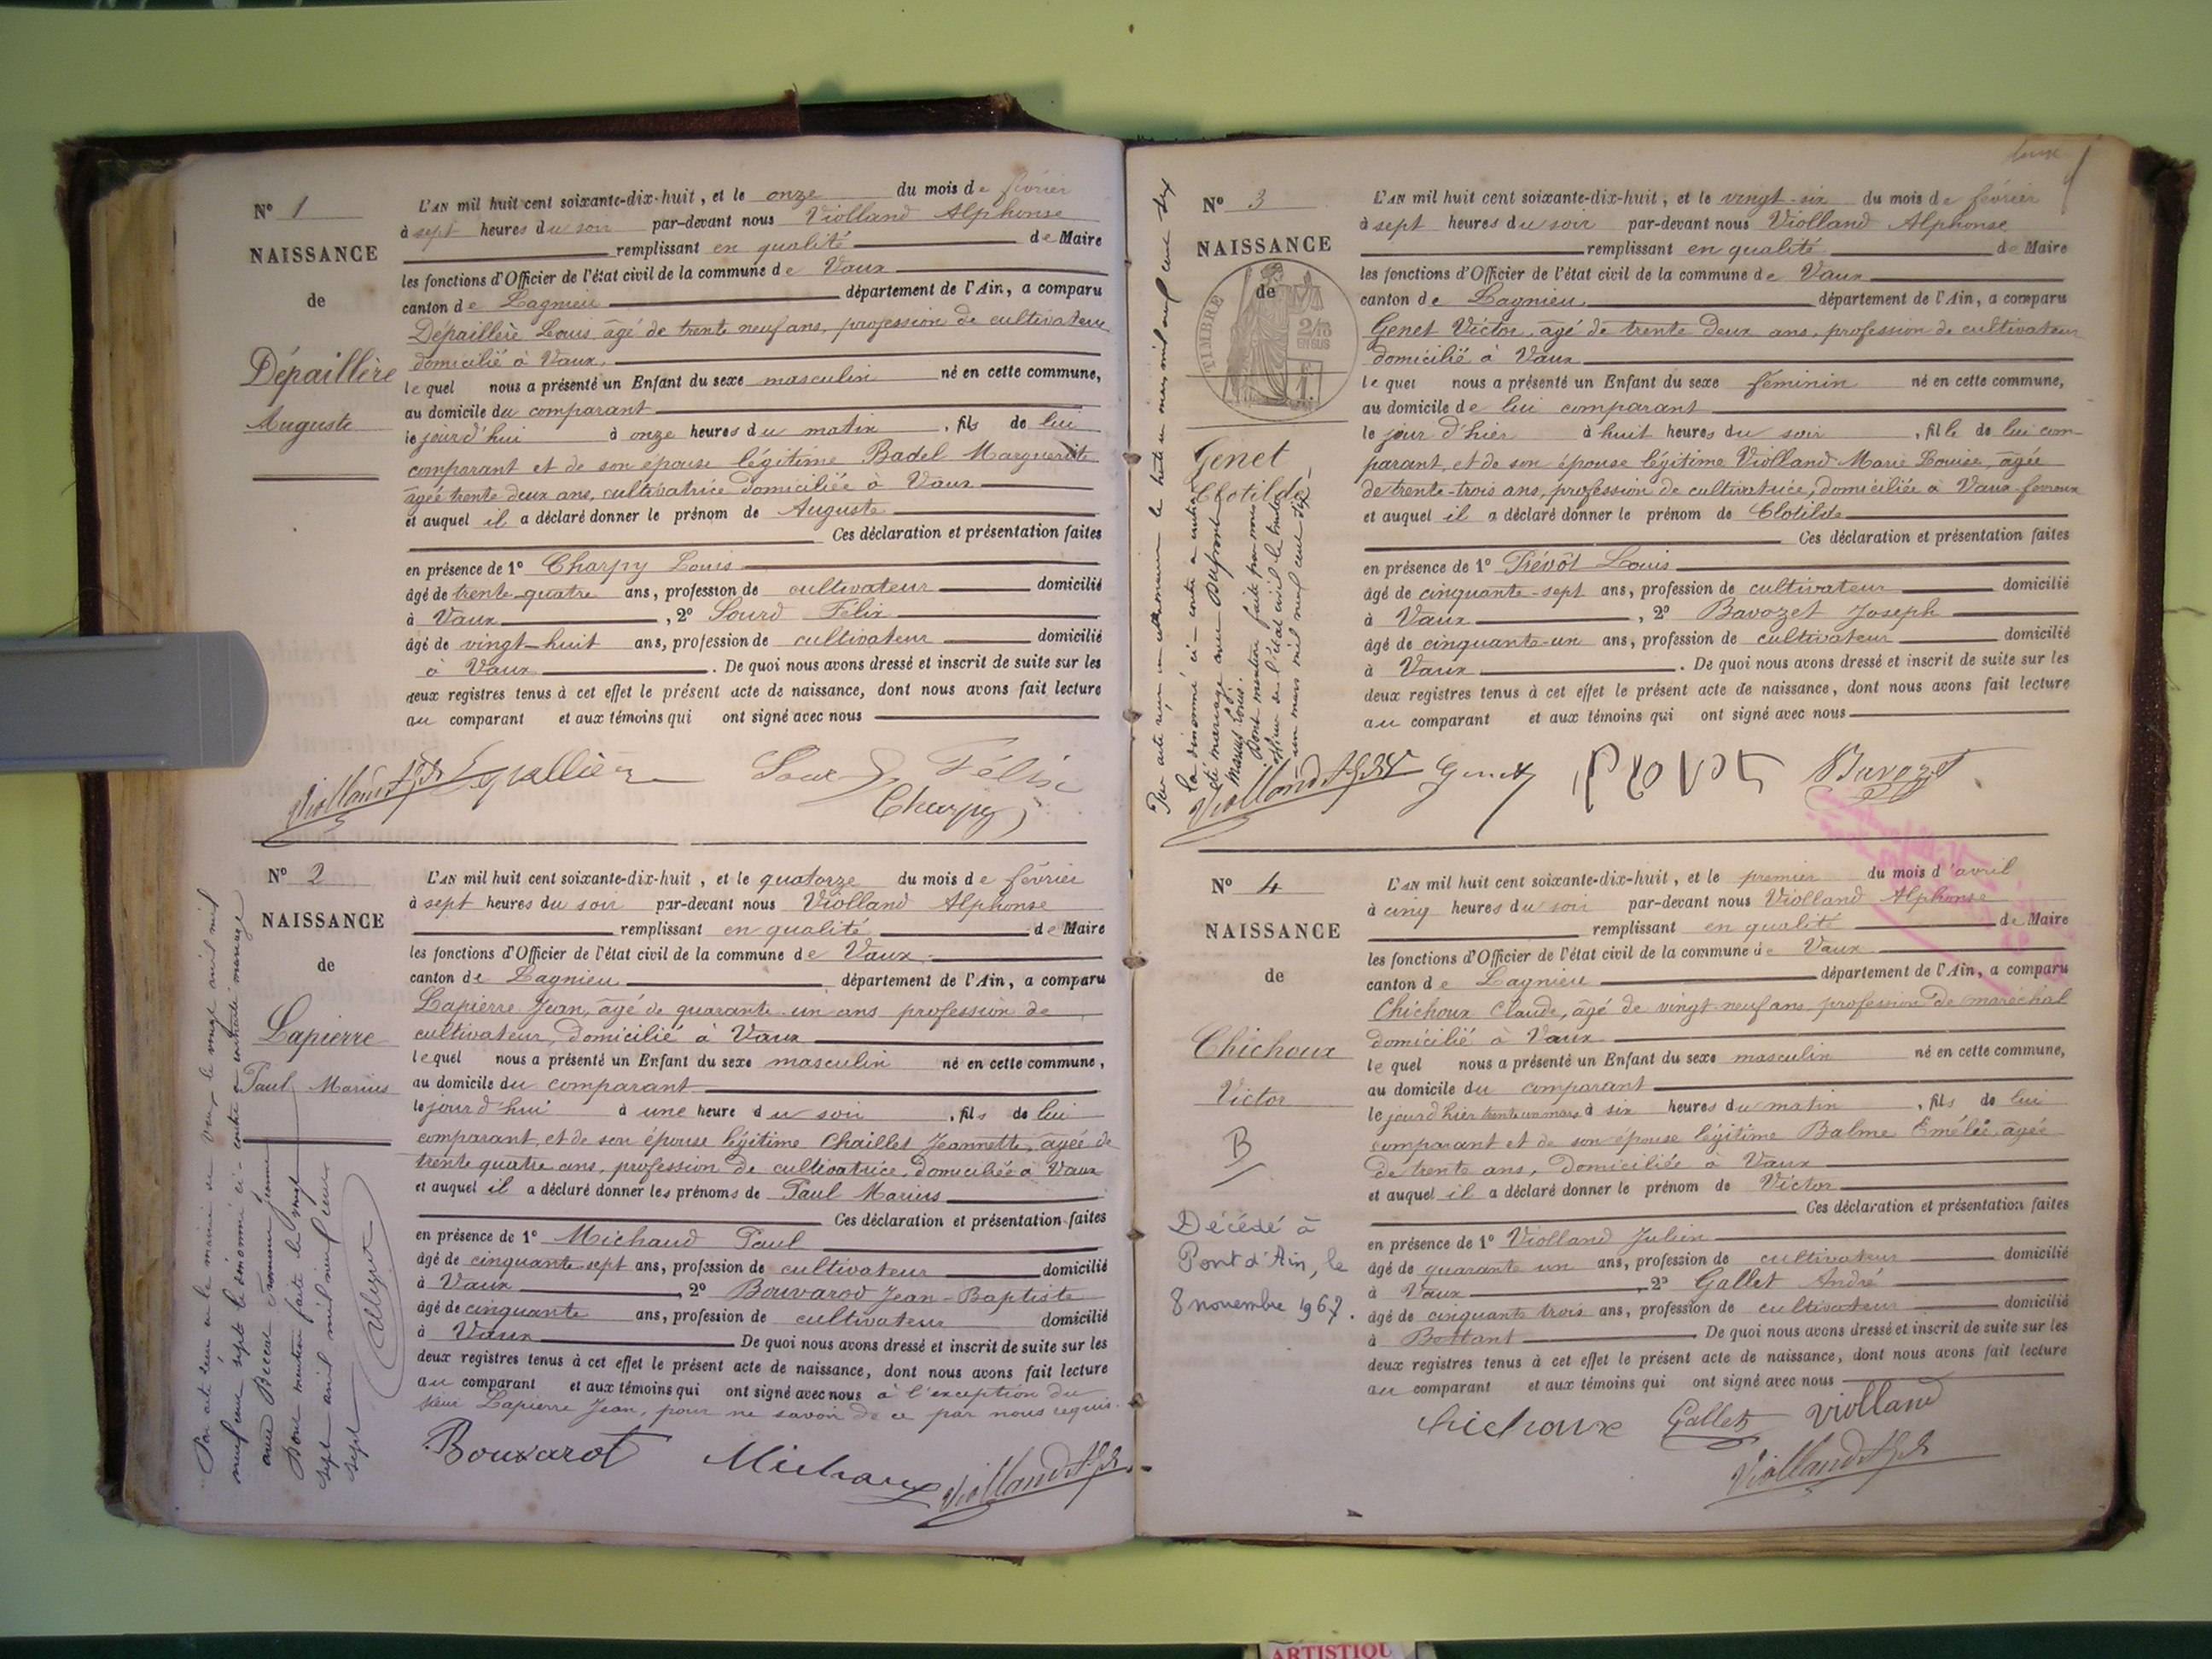 N° 1
NAISSANCE
de
Dépaillère
Auguste
L'AN mil huit cent soixante-dix-huit, et le onze du mois de février
à sept heures du soir par-devant nous Violland Alphonse
remplissant en qualité de Maire
les fonctions d'Officier de l'état civil de la commune de Vaux
canton de Lagnieu département de l'Ain, a comparu
Dépaillère Louis âgé de trente neuf ans, profession de cultivateur
domicilié à Vaux,
lequel nous a présenté un Enfant du sexe masculin né en cette commune,
au domicile du comparant
le jourd'hui à onze heures du matin, fils de lui
comparant et de son épouse légitime Badel Marguerite
âgée trente deux ans, cultivatrice domiciliée à Vaux
et auquel il a déclaré donner le prénom de Auguste
Ces déclaration et présentation faites
en présence de 1° Charpy Louis
âgé de trente-quatre ans, profession de cultivateur domicilié
à Vaux, 2° Sourd Félix
âgé de vingt-huit ans, profession de cultivateur domicilié
à Vaux. De quoi nous avons dressé et inscrit de suite sur les
deux registres tenus à cet effet le présent acte de naissance, dont nous avons fait lecture
au comparant et aux témoins qui ont signé avec nous
Sourd Félix
Charpy
N° 2
NAISSANCE
de
Lapierre
Paul Marius
Par acte reçu en la mairie de Vaux le vingt avril mil
neuf cent sept le dénommé ci-contre a contracté mariage
avec
Dont mention faite le vingt
sept avril mil neuf cent
sept
L'AN mil huit cent soixante-dix-huit, et le quatorze du mois de février
à sept heures du soir par-devant nous Violland Alphonse
remplissant en qualité de Maire
les fonctions d'Officier de l'état civil de la commune de Vaux
canton de Lagnieu département de l'Ain, a comparu
Lapierre Jean, âgé de quarante-un ans profession de
cultivateur, domicilié à Vaux
lequel nous a présenté un Enfant du sexe masculin né en cette commune,
au domicile du comparant
le jourd'hui à une heure du soir, fils de lui
comparant, et de son épouse légitime Chaillet Jeannette, âgée de
trente quatre ans, profession de cultivatrice, domiciliée à Vaux
et auquel il a déclaré donner les prénoms de Paul Marius
Ces déclaration et présentation faites
en présence de 1° Michaud Paul
âgé de cinquante-sept ans, profession de cultivateur domicilié
à Vaux, 2° Bouvarod Jean-Baptiste
âgé de cinquante ans, profession de cultivateur domicilié
à Vaux De quoi nous avons dressé et inscrit de suite sur les
deux registres tenus à cet effet le présent acte de naissance, dont nous avons fait lecture
au comparant et aux témoins qui ont signé avec nous à l'exception du
sieur Lapierre Jean, pour ne savoir de ce par nous requis.
Bouvarot Michaud Violland Alph
N° 3
NAISSANCE
de
TIMBRE
2/10
EN SUS
Genet
Clotilde
Dont mention faite par nous
L'AN mil huit cent soixante-dix-huit, et le vingt-six du mois de février
à sept heures du soir par-devant nous Violland Alphonse
remplissant en qualité de Maire
les fonctions d'Officier de l'état civil de la commune de Vaux
canton de Lagnieu département de l'Ain, a comparu
Genet Victor, âgé de trente deux ans, profession de cultivateur
domicilié à Vaux
lequel nous a présenté un Enfant du sexe féminin né en cette commune,
au domicile de lui comparant
le jour d'hier à huit heures du soir, fille de lui com-
parant, et de son épouse légitime Violland Marie Louise, âgée
de trente-trois ans, profession de cultivatrice, domiciliée à Vaux-fevroux
et auquel il a déclaré donner le prénom de Clotilde
Ces déclaration et présentation faites
en présence de 1° Prévôt Louis
âgé de cinquante-sept ans, profession de cultivateur domicilié
à Vaux, 2° Bavozet Joseph
âgé de cinquante-un ans, profession de cultivateur domicilié
à Vaux. De quoi nous avons dressé et inscrit de suite sur les
deux registres tenus à cet effet le présent acte de naissance, dont nous avons fait lecture
au comparant et aux témoins qui ont signé avec nous
Violland Alph Genet Bavozet
N° 4
NAISSANCE
de
Chichoux
Victor
B
Décédé à
Pont d'Ain, le
8 novembre 1967.
L'AN mil huit cent soixante-dix-huit, et le premier du mois d'avril
à cinq heures du soir par-devant nous Violland Alphonse
remplissant en qualité de Maire
les fonctions d'Officier de l'état civil de la commune de Vaux
canton de Lagnieu département de l'Ain, a comparu
Chichoux Claude, âgé de vingt-neuf ans profession de maréchal
domicilié à Vaux
lequel nous a présenté un Enfant du sexe masculin né en cette commune,
au domicile du comparant
le jourd'hier trente un mars à six heures du matin, fils de lui
comparant et de son épouse légitime Balme Emélie, âgée
de trente ans, domiciliée à Vaux
et auquel il a déclaré donner le prénom de Victor
Ces déclaration et présentation faites
en présence de 1° Violland Julien
âgé de quarante un ans, profession de cultivateur domicilié
à Vaux, 2° Gallet André
âgé de cinquante trois ans, profession de cultivateur domicilié
à Bottant De quoi nous avons dressé et inscrit de suite sur les
deux registres tenus à cet effet le présent acte de naissance, dont nous avons fait lecture
au comparant et aux témoins qui ont signé avec nous
chichoux Gallet violland
Violland Alph
ARTISTIQU